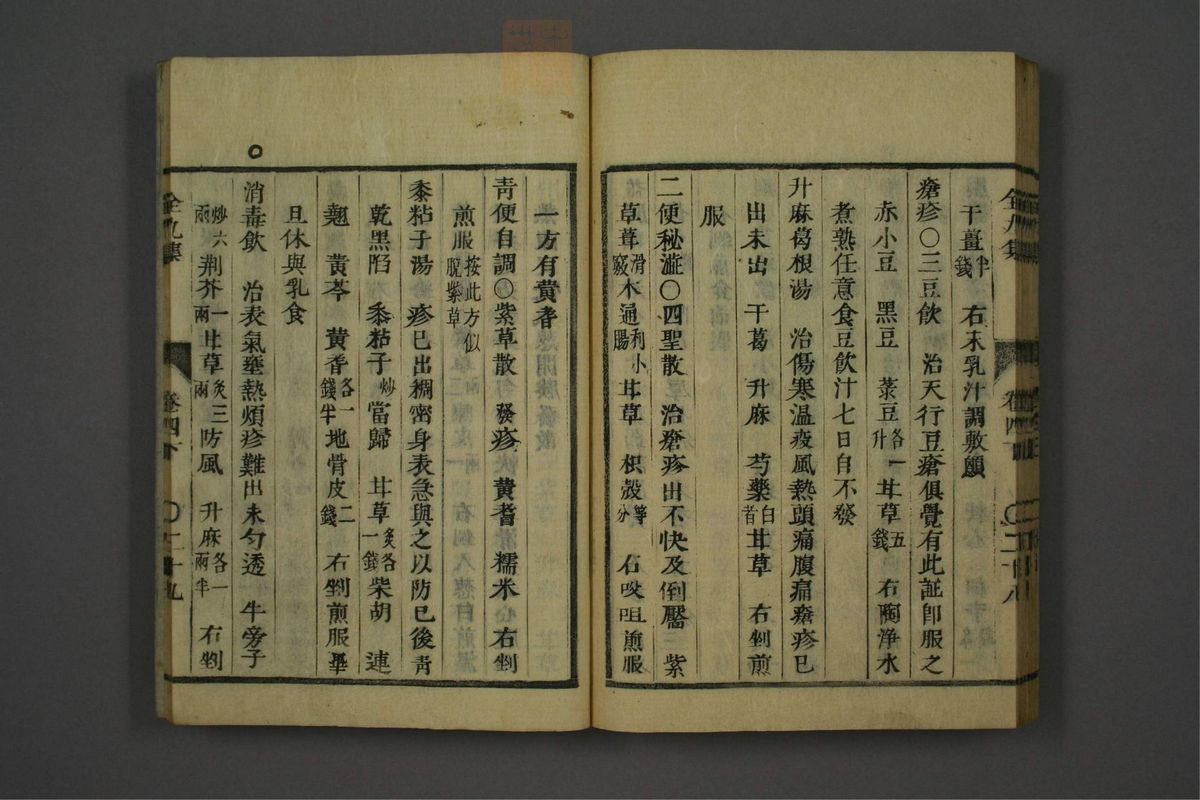 干薑半錢　右末乳汁調敷顖
瘡疹〇三豆飲　治天行豆瘡俱覺有此証卽服之
赤小豆　黑豆　菉豆各一升　甘草五錢　右陶淨水
煮熟任意食豆飲汁七日自不發
升麻葛根湯　治傷寒温疫風熱頭痛腹痛瘡疹已
出未出　干葛　升麻　芍藥白者　甘草　右剉煎
服
二便秘澁〇四聖散　治瘡疹出不快及倒黶　紫
草茸滑竅　木通利小腸　甘草　枳殼等分　右㕮咀煎服
一方有黃耆
靑便自調〇紫草散　發疹　黃耆　糯米　右剉
煎服按此方似脫紫草
黍粘子湯　疹已出稠密身表急與之以防已後靑
乾黑陷　黍粘子炒　當歸　甘草炙各一錢　柴胡　連
翹　黃芩　黃耆各一錢半　地骨皮二錢　右剉煎服畢
且休與乳食
消毒飲　治表氣壅熱煩疹難出未勻透　牛旁子
炒六兩　荆芥一兩　甘草炙三兩　防風　升麻各一兩半　右剉
全九集　卷四下　〇二十八
全九集　卷四下　〇二十九